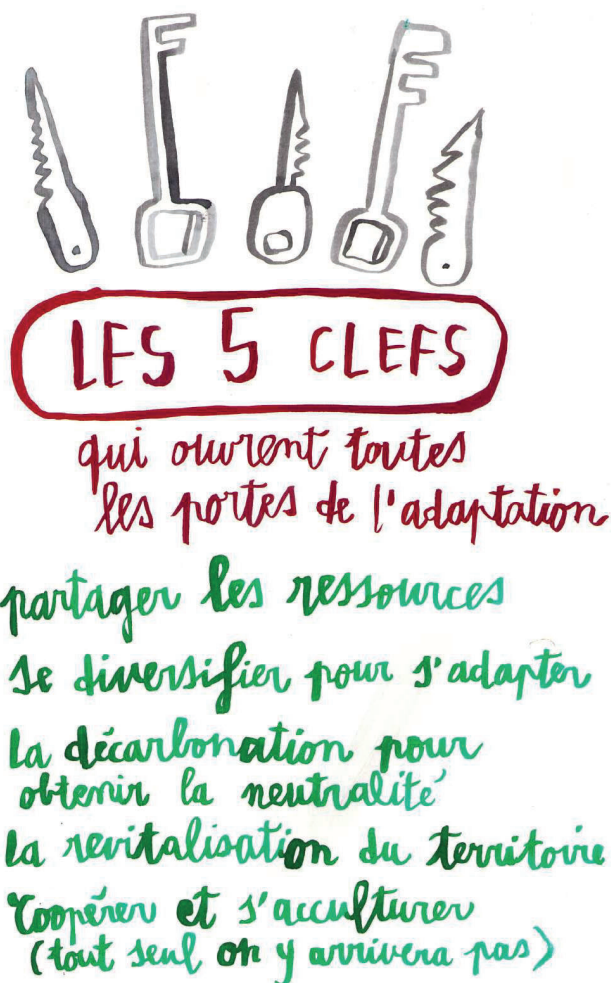 LES 5 CLEFS
qui ouvrent toutes
les portes de l'adaptation
partager les ressources
se diversifier pour s'adapter
la décarbonation pour
obtenir la neutralité
la revitalisation du territoire
Coopérer et s'acculturer
(tout seul on y arrivera pas)